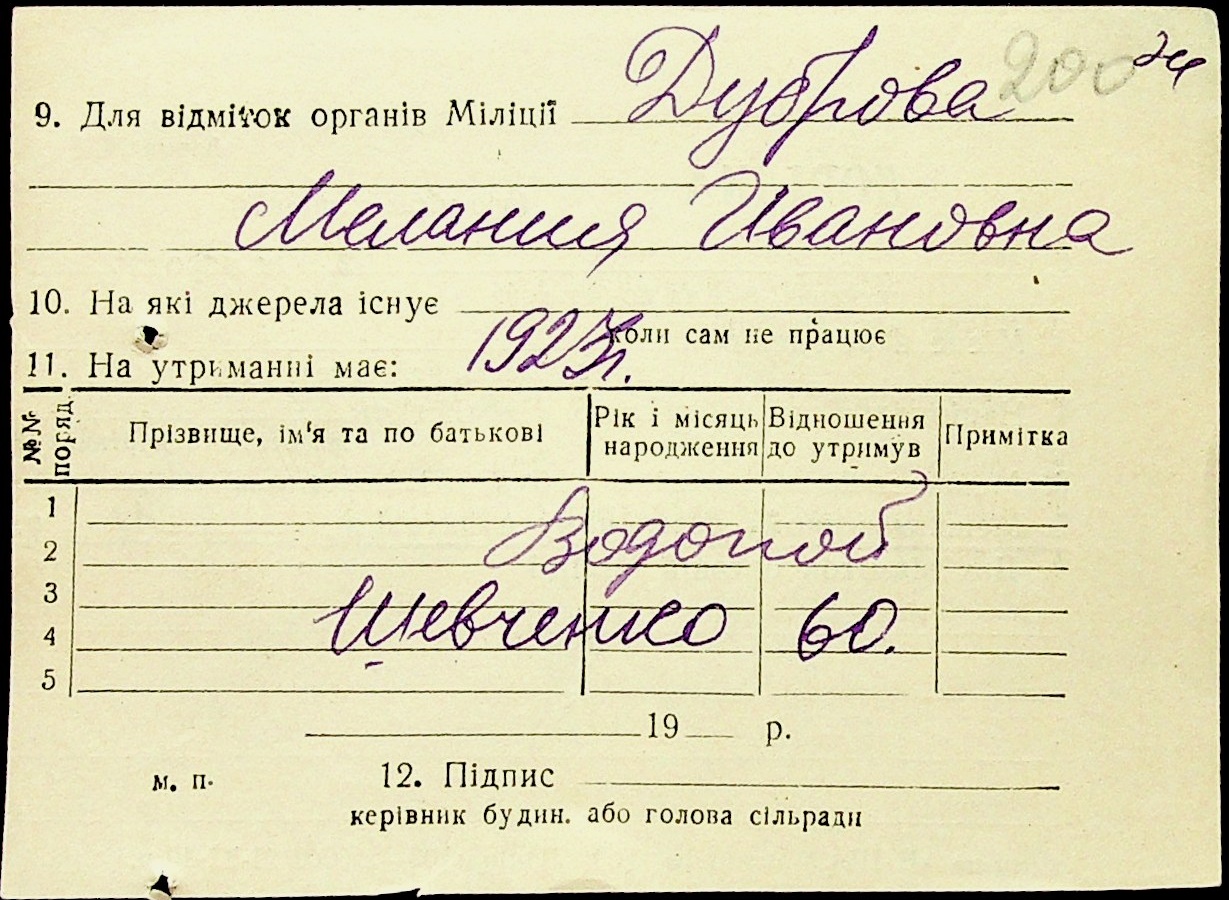 200
9. Для відміток органів Міліції Дуброва
Мелания Ивановна
10. На які джерела існує
коли сам не працює
1923г.
11. На утриманні має:
№№ поряд.
Прізвище, ім'я та по батькові
Рік і місяць народження
Відношення до утримув
Примітка
1
2
Водопой
3
4
Шевченко 60.
5
19 р.
м. п.
12. Підпис
керівник будин. або голова сільради